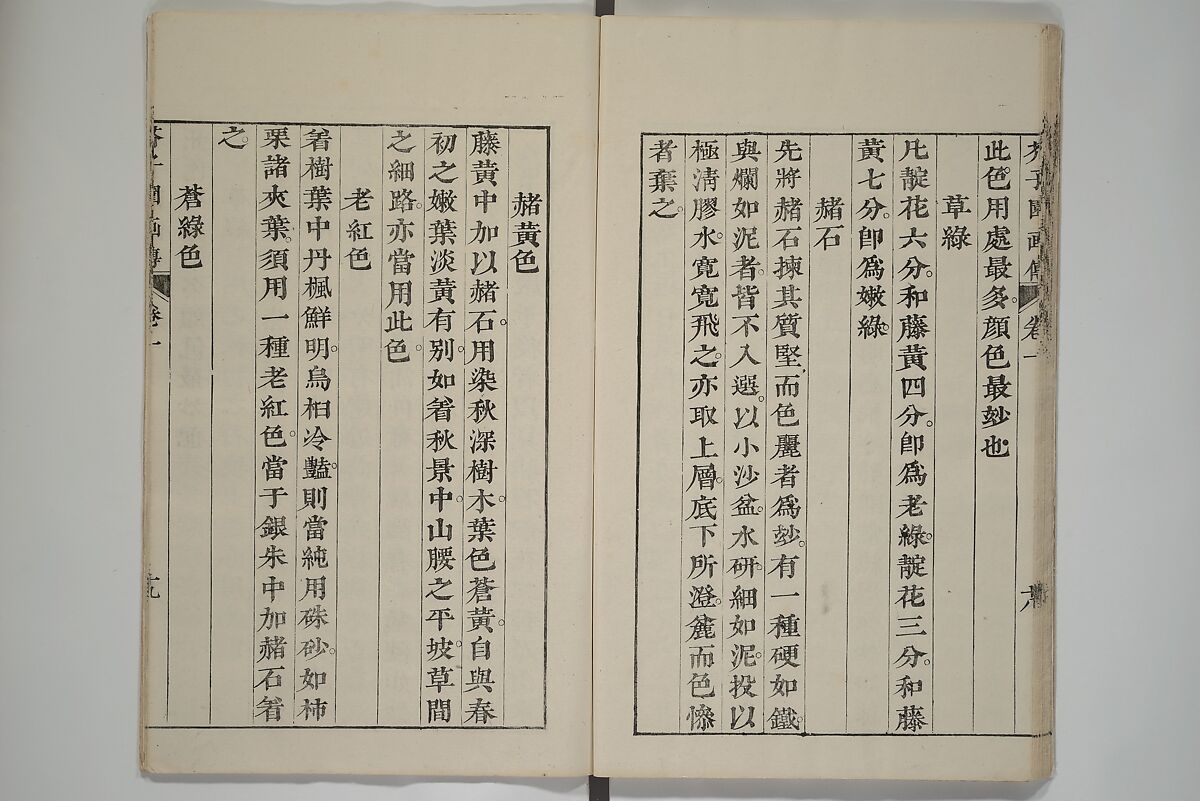 芥子園画傳 卷一
此色用處最多。顔色最玅也
草綠
凡靛花六分。和藤黃四分。卽爲老綠。靛花三分。和藤
黃七分。卽爲嫩綠。
赭石
先將赭石揀其質堅而色麗者爲玅。有一種硬如鐵。
與爛如泥者。皆不入選。以小沙盆。水研細如泥。投以
極淸膠水。寛寛飛之。亦取上層。底下所澄。麄而色慘
者棄之。
赭黃色
藤黃中加以赭石。用染秋深樹木。葉色蒼黃。自與春
初之嫩葉淡黃有别。如着秋景中。山腰之平坡。草間
之細路。亦當用此色。
老紅色
着樹葉中丹楓鮮明。烏桕冷豔。則當純用硃砂。如柿
栗諸夾葉。須用一種老紅色。當于銀朱中加赭石着
之。
蒼綠色
芥子園画傳 卷一 十九